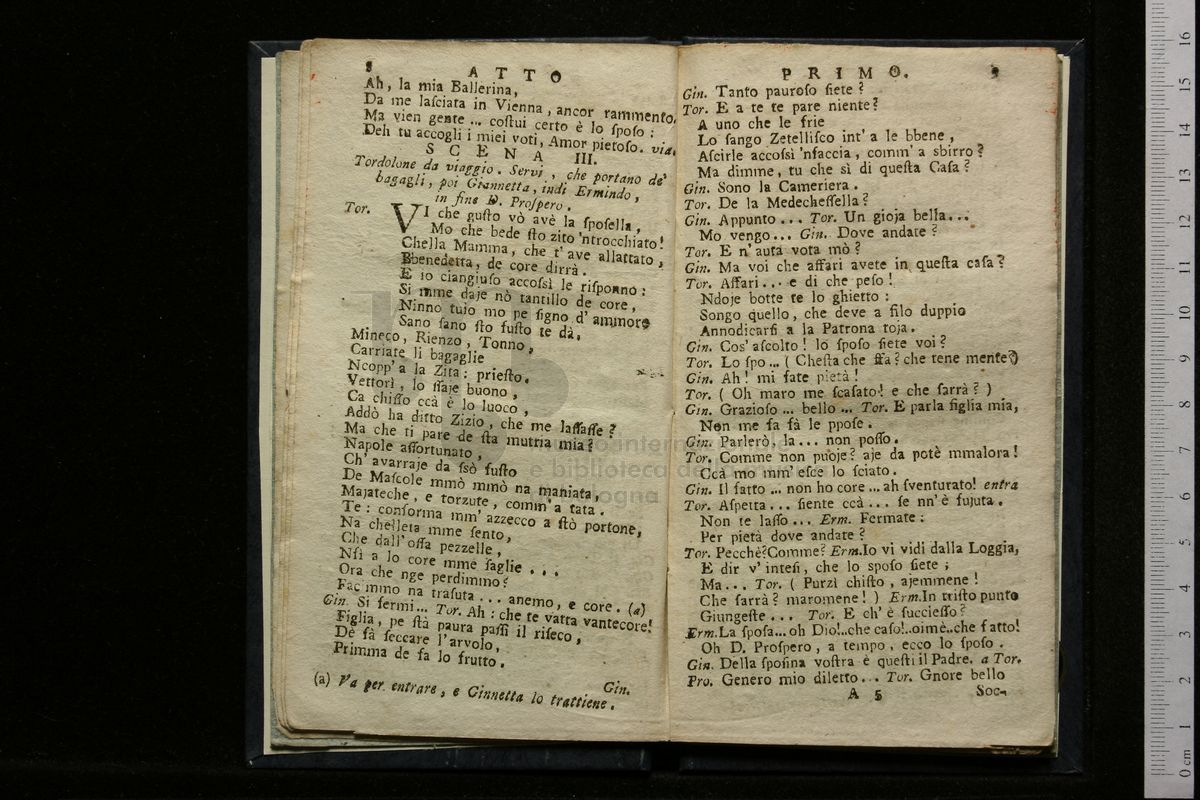 8 ATTO
Ah, la mia Ballerina,
Da me laſciata in Vienna, ancor rammento.
Ma vien gente ... coſtui certo è lo ſpoſo:
Deh tu accogli i miei voti, Amor pietoſo. via.
SCENA III.
Tordolone da viaggio. Servi, che portano de'
bagagli, poi Giannetta, indi Ermindo,
in fine D. Proſpero.
Tor. VI che guſto vò avè la ſpoſella,
Mo che bede ſto zito 'ntrocchiato!
Chella Mamma, che t'ave allattato,
Bbenedetta, de core dirrà.
E io ciangiuſo accoſsì le riſponno:
Si mme daje nò tantillo de core,
Ninno tujo mo pe ſigno d'ammore
Sano ſano ſto fuſto te dà,
Mineco, Rienzo, Tonno,
Carriate li bagaglie
Ncopp' a la Zita: prieſto.
Vettorì, lo ſſaje buono,
Ca chiſſo ccà è lo luoco,
Addò ha ditto Zizio, che me laſſaſſe?
Ma che ti pare de ſta mutria mia?
Napole affortunato,
Ch' avarraje da ſsò fuſto
De Maſcole mmò mmò na maniata,
Majateche, e torzute, comm'a tata.
Te: conforma mm' azzecco a ſtò portone,
Na chelleta mme ſento,
Che dall'oſſa pezzelle,
Nſi a lo core mme ſaglie ...
Ora che nge perdimmo?
Facimmo na traſuta ... anemo, e core. (a)
Gin. Si fermi... Tor. Ah: che te vatta vantecore!
Figlia, pe ſtà paura paſſi il riſeco,
De fà ſeccare l'arvolo,
Primma de fa lo frutto.
Gin.
(a) Va per entrare, e Ginnetta lo trattiene.
PRIMO. 9
Gin. Tanto pauroſo ſiete?
Tor. E a te te pare niente?
A uno che le frie
Lo ſango Zetelliſco int' a le bbene,
Aſcirle accoſsì 'nfaccia, comm' a sbirro?
Ma dimme, tu che sì di queſta Caſa?
Gin. Sono la Cameriera.
Tor. De la Medecheſſella?
Gin. Appunto... Tor. Un gioja bella...
Mo vengo... Gin. Dove andate?
Tor. E n'auta vota mò?
Gin. Ma voi che affari avete in queſta caſa?
Tor. Affari... e di che peſo!
Ndoje botte te lo ghietto:
Songo quello, che deve a filo duppio
Annodicarſi a la Patrona toja.
Gin. Cos'aſcolto! lo ſpoſo ſiete voi?
Tor. Lo ſpo... (Cheſta che ffa? che tene mente?)
Gin. Ah! mi fate pietà!
Tor. ( Oh maro me ſcaſato! e che ſarrà? )
Gin. Grazioſo ... bello ... Tor. E parla figlia mia,
Non me fa fà le ppoſe.
Gin. Parlerò, la... non poſſo.
Tor. Comme non puoje? aje da potè mmalora!
Ccà mo mm'eſce lo ſciato.
Gin. Il fatto ... non ho core ... ah ſventurato! entra
Tor. Aſpetta... ſiente ccà... ſe nn'è fujuta.
Non te laſſo... Erm. Fermate:
Per pietà dove andate?
Tor. Pecchè? Comme? Erm. Io vi vidi dalla Loggia,
E dir v'inteſi, che lo ſpoſo ſiete;
Ma... Tor. ( Purzì chiſto, ajemmene!
Che ſarrà? maromene! ) Erm. In triſto punto
Giungeſte... Tor. E ch'è ſuccieſſo?
Erm. La ſpoſa... oh Dio!..che caſo!..oimè..che fatto!
Oh D. Proſpero, a tempo, ecco lo ſpoſo.
Gin. Della ſpoſina voſtra è queſti il Padre. a Tor.
Pro. Genero mio diletto... Tor. Gnore bello
A 5 Soc-
0 cm 1 2 3 4 5 6 7 8 9 10 11 12 13 14 15 16